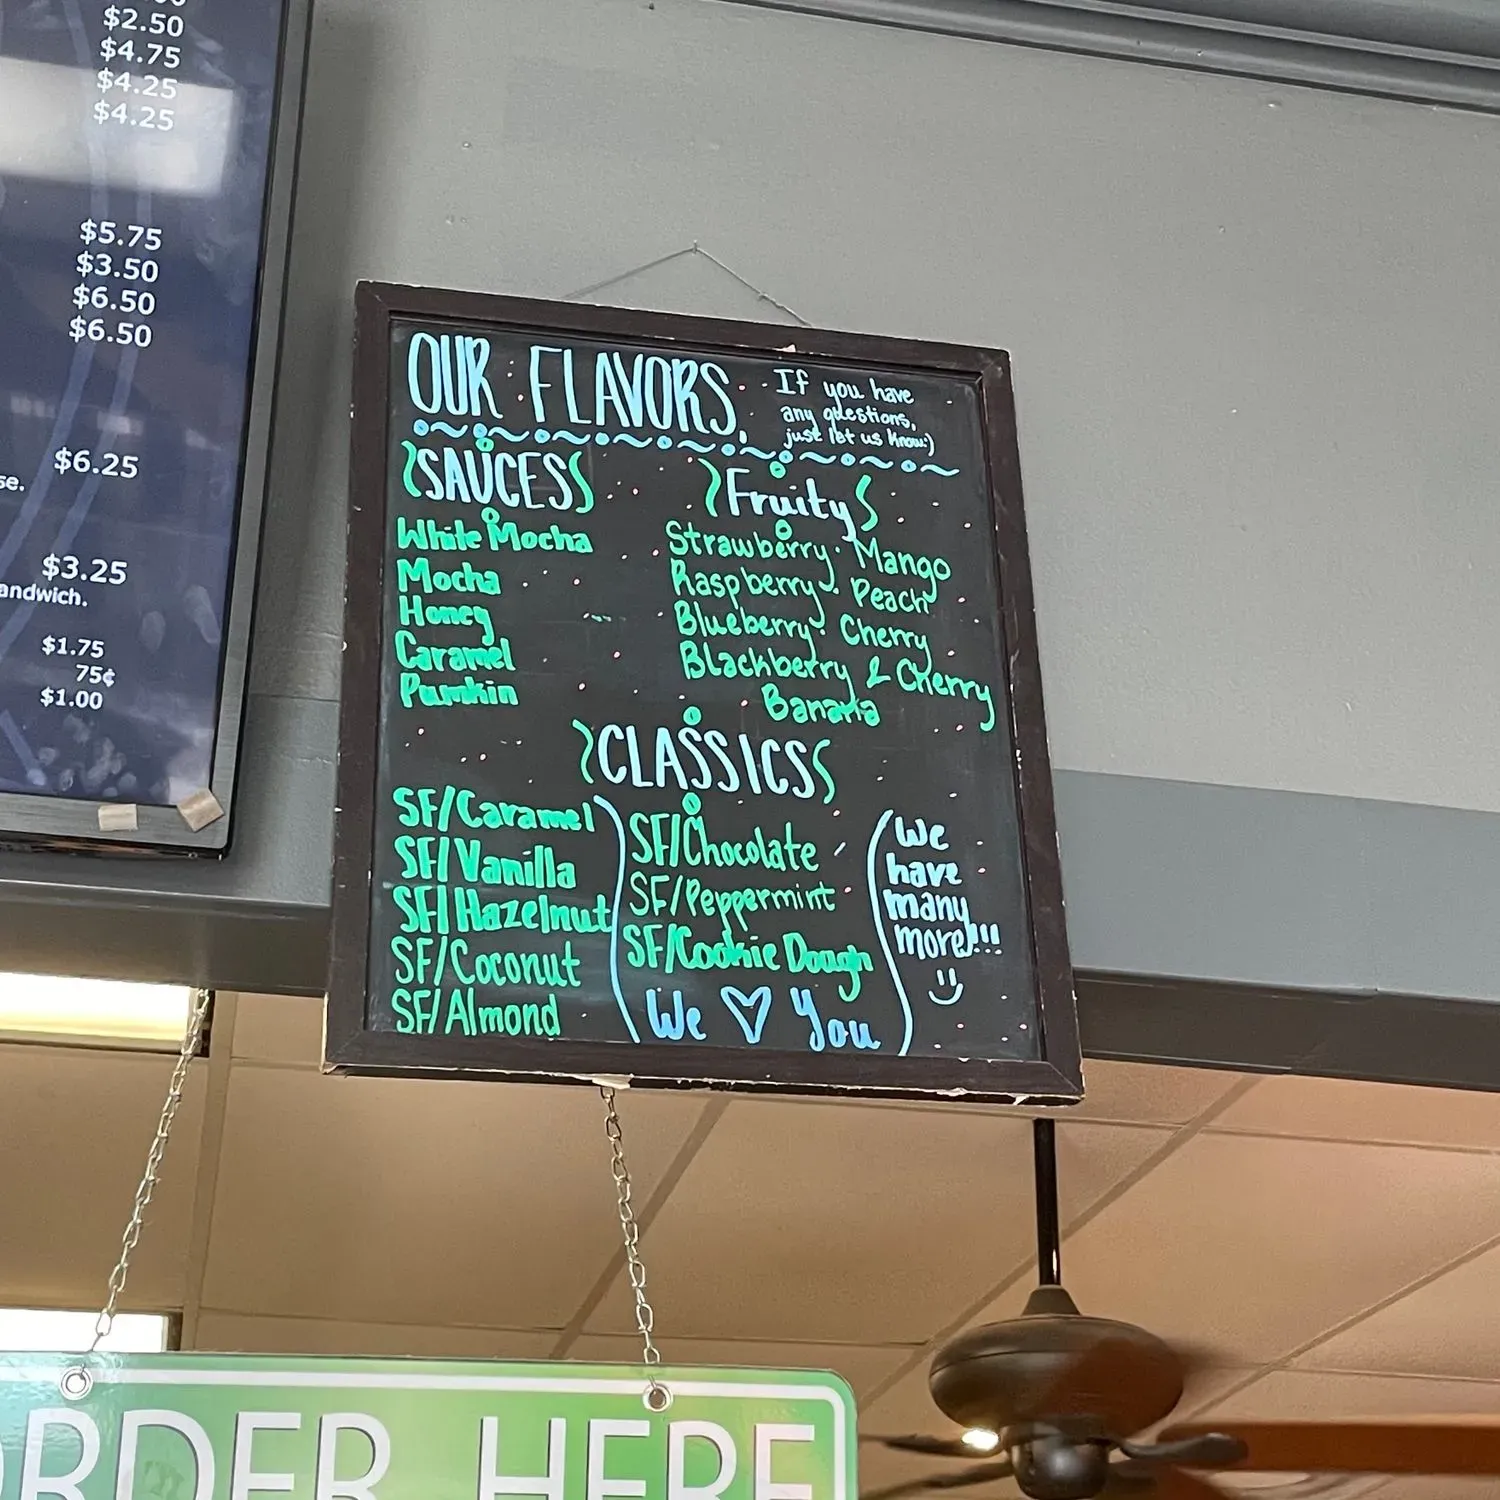 $2.50
$4.75
$4.25
$4.25
$5.75
$3.50
$6.50
$6.50
$6.25
se.
$3.25
andwich.
$1.75
75¢
$1.00
OUR FLAVORS
If you have
any questions,
just let us know:)
SAUCES
White Mocha
Mocha
Honey
Caramel
Pumkin
Fruity
Strawberry · Mango
Raspberry · Peach
Blueberry · Cherry
Blackberry & Cherry
Banana
CLASSICS
SF/Caramel
SF/Vanilla
SF/Hazelnut
SF/Coconut
SF/Almond
SF/Chocolate
SF/Peppermint
SF/Cookie Dough
We ♡ You
We
have
many
more!!!
ORDER HERE